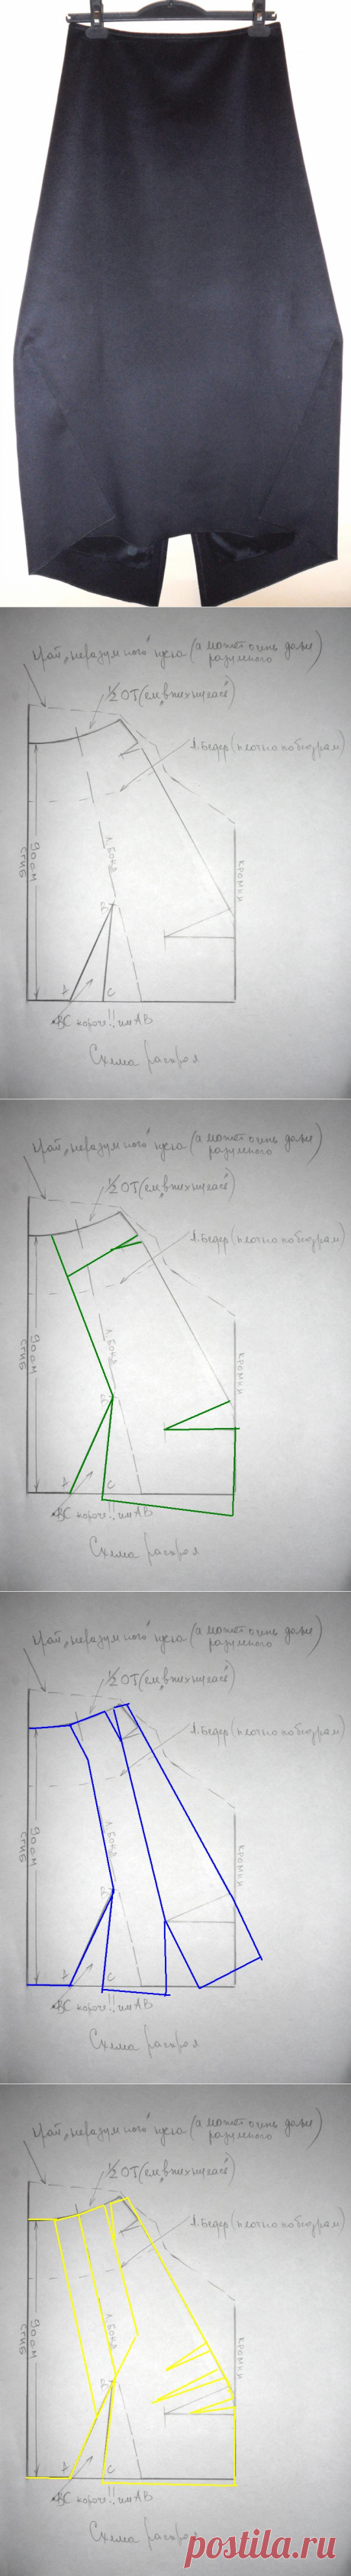 край „неразумного" куска (а может очень даже
разумного)
½ ОТ (см. в
л. Бедер (плотно по бедрам)
90 см
сгиб
л. бока
кромки
А
В
С
ВС короче!!, чем АВ
Схема раскроя
край „неразумного" куска (а может очень даже
разумного)
½ ОТ (см. в
л. Бедер (плотно по бедрам)
90 см
сгиб
л. бока
кромки
А
В
С
ВС короче!!, чем АВ
Схема раскроя
край „неразумного" куска (а может очень даже
разумного)
½ ОТ (см. в
л. Бедер (плотно по бедрам)
90 см
сгиб
л. бока
кромки
А
В
С
ВС короче!!, чем АВ
Схема раскроя
край „неразумного" куска (а может очень даже
разумного)
½ ОТ (см. в
л. Бедер (плотно по бедрам)
90 см
сгиб
л. бока
кромки
А
В
С
ВС короче!!, чем АВ
Схема раскроя
postila.ru